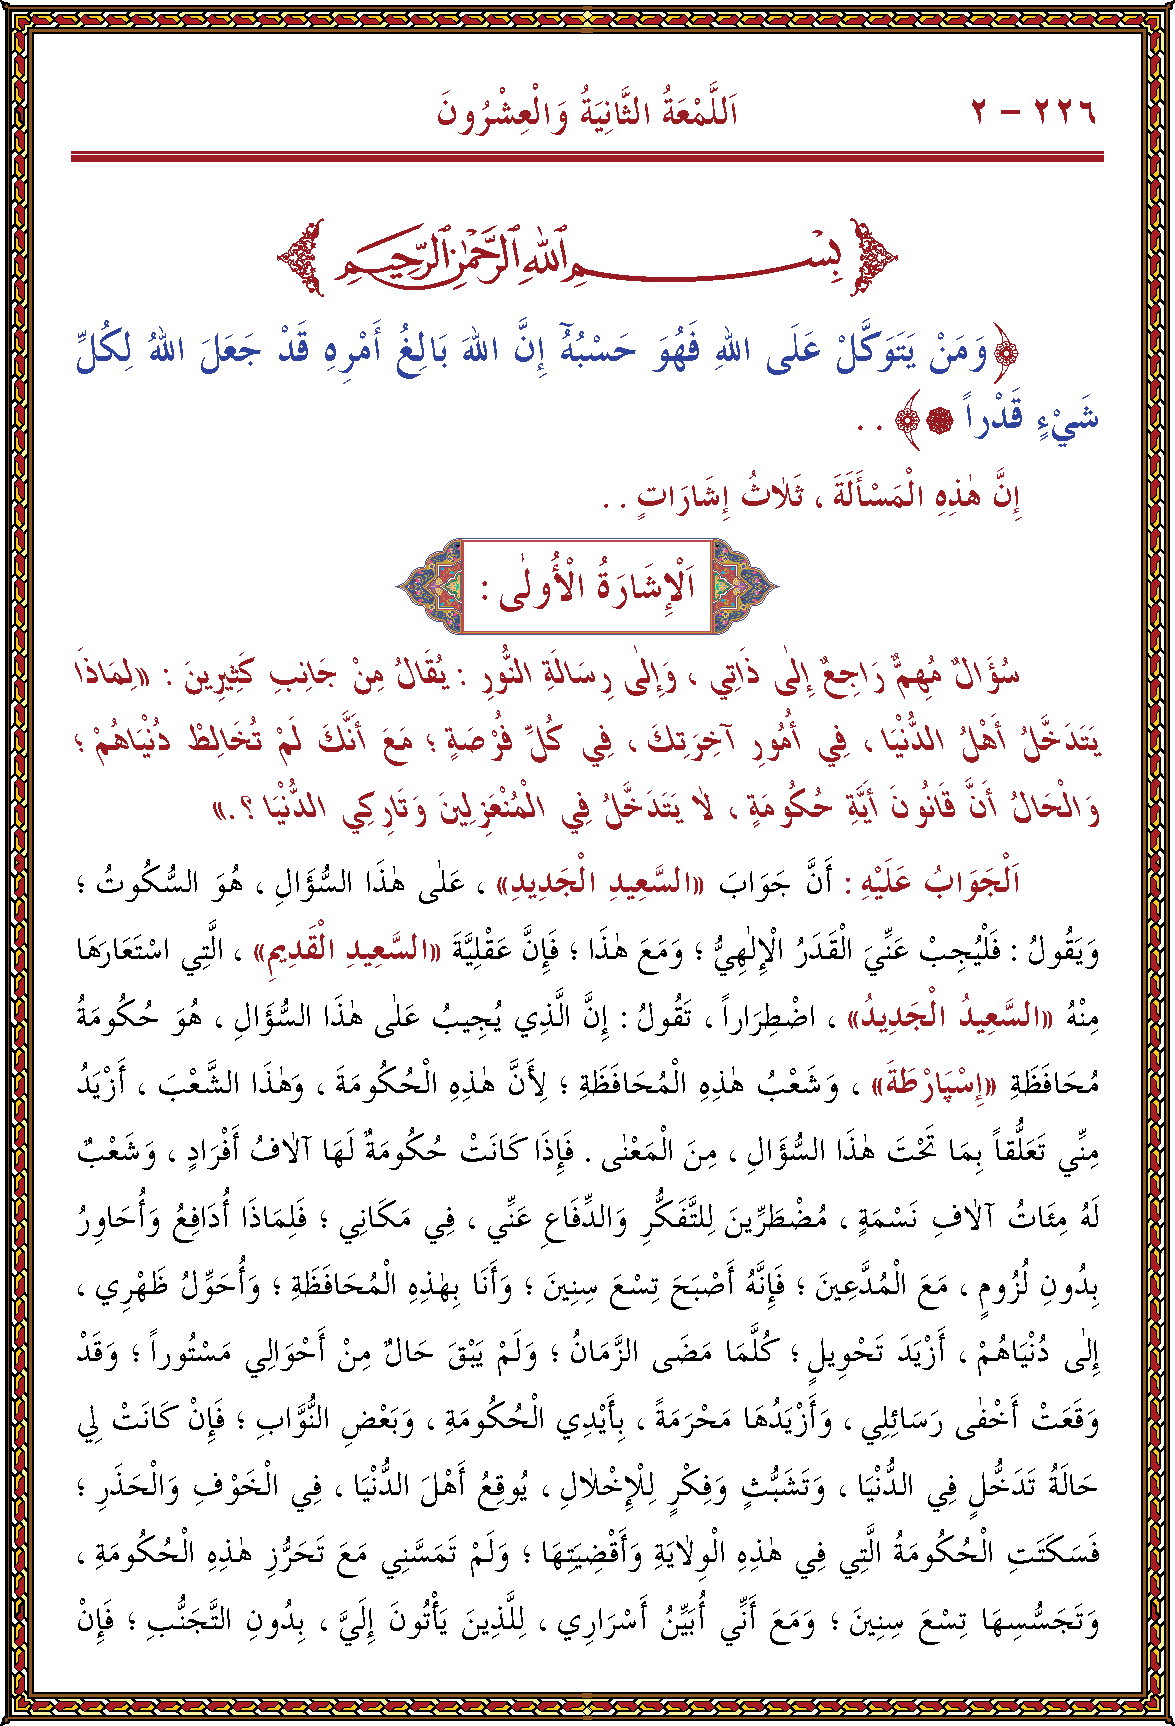 ٢٢٦ – ٢
اَللَّمْعَةُ الثَّانِيَةُ وَالْعِشْرُونَ
بِسْمِ اللهِ الرَّحْمٰنِ الرَّحِيمِ
﴿وَمَنْ يَتَوَكَّلْ عَلَى اللهِ فَهُوَ حَسْبُهُٓ إِنَّ اللهَ بَالِغُ أَمْرِهِ قَدْ جَعَلَ اللهُ لِكُلِّ
شَيْءٍ قَدْراً ۞﴾ . .
إِنَّ هٰذِهِ الْمَسْأَلَةَ ، ثَلَاثُ إِشَارَاتٍ . .
اَلْإِشَارَةُ الْأُولٰى :
سُؤَالٌ مُهِمٌّ رَاجِعٌ إِلٰى ذَاتِي ، وَإِلٰى رِسَالَةِ النُّورِ : يُقَالُ مِنْ جَانِبِ كَثِيرِينَ : «لِمَاذَا
يَتَدَخَّلُ أَهْلُ الدُّنْيَا ، فِي أُمُورِ آخِرَتِكَ ، فِي كُلِّ فُرْصَةٍ ؛ مَعَ أَنَّكَ لَمْ تُخَالِطْ دُنْيَاهُمْ ؛
وَالْحَالُ أَنَّ قَانُونَ أَيَّةِ حُكُومَةٍ ، لَا يَتَدَخَّلُ فِي الْمُنْعَزِلِينَ وَتَارِكِي الدُّنْيَا ؟.»
اَلْجَوَابُ عَلَيْهِ : أَنَّ جَوَابَ «السَّعِيدِ الْجَدِيدِ» ، عَلٰى هٰذَا السُّؤَالِ ، هُوَ السُّكُوتُ ؛
وَيَقُولُ : فَلْيُجِبْ عَنِّيَ الْقَدَرُ الْإِلٰهِيُّ ؛ وَمَعَ هٰذَا ؛ فَإِنَّ عَقْلِيَّةَ «السَّعِيدِ الْقَدِيمِ» ، الَّتِي اسْتَعَارَهَا
مِنْهُ «السَّعِيدُ الْجَدِيدُ» ، اضْطِرَاراً ، تَقُولُ : إِنَّ الَّذِي يُجِيبُ عَلٰى هٰذَا السُّؤَالِ ، هُوَ حُكُومَةُ
مُحَافَظَةِ «إِسْپَارْطَةَ» ، وَشَعْبُ هٰذِهِ الْمُحَافَظَةِ ؛ لِأَنَّ هٰذِهِ الْحُكُومَةَ ، وَهٰذَا الشَّعْبَ ، أَزْيَدُ
مِنِّي تَعَلُّقاً بِمَا تَحْتَ هٰذَا السُّؤَالِ ، مِنَ الْمَعْنٰى . فَإِذَا كَانَتْ حُكُومَةٌ لَهَا آلَافُ أَفْرَادٍ ، وَشَعْبٌ
لَهُ مِئَاتُ آلَافِ نَسْمَةٍ ، مُضْطَرِّينَ لِلتَّفَكُّرِ وَالدِّفَاعِ عَنِّي ، فِي مَكَانِي ؛ فَلِمَاذَا أُدَافِعُ وَأُحَاوِرُ
بِدُونِ لُزُومٍ ، مَعَ الْمُدَّعِينَ ؛ فَإِنَّهُ أَصْبَحَ تِسْعَ سِنِينَ ؛ وَأَنَا بِهٰذِهِ الْمُحَافَظَةِ ؛ وَأُحَوِّلُ ظَهْرِي ،
إِلٰى دُنْيَاهُمْ ، أَزْيَدَ تَحْوِيلٍ ؛ كُلَّمَا مَضَى الزَّمَانُ ؛ وَلَمْ يَبْقَ حَالٌ مِنْ أَحْوَالِي مَسْتُوراً ؛ وَقَدْ
وَقَعَتْ أَخْفٰى رَسَائِلِي ، وَأَزْيَدُهَا مَحْرَمَةً ، بِأَيْدِي الْحُكُومَةِ ، وَبَعْضِ النُّوَّابِ ؛ فَإِنْ كَانَتْ لِي
حَالَةُ تَدَخُّلٍ فِي الدُّنْيَا ، وَتَشَبُّثٍ وَفِكْرٍ لِلْإِخْلَالِ ، يُوقِعُ أَهْلَ الدُّنْيَا ، فِي الْخَوْفِ وَالْحَذَرِ ؛
فَسَكَتَتِ الْحُكُومَةُ الَّتِي فِي هٰذِهِ الْوِلَايَةِ وَأَقْضِيَتِهَا ؛ وَلَمْ تَمَسَّنِي مَعَ تَحَرُّزِ هٰذِهِ الْحُكُومَةِ ،
وَتَجَسُّسِهَا تِسْعَ سِنِينَ ؛ وَمَعَ أَنِّي أُبَيِّنُ أَسْرَارِي ، لِلَّذِينَ يَأْتُونَ إِلَيَّ ، بِدُونِ التَّجَنُّبِ ؛ فَإِنْ